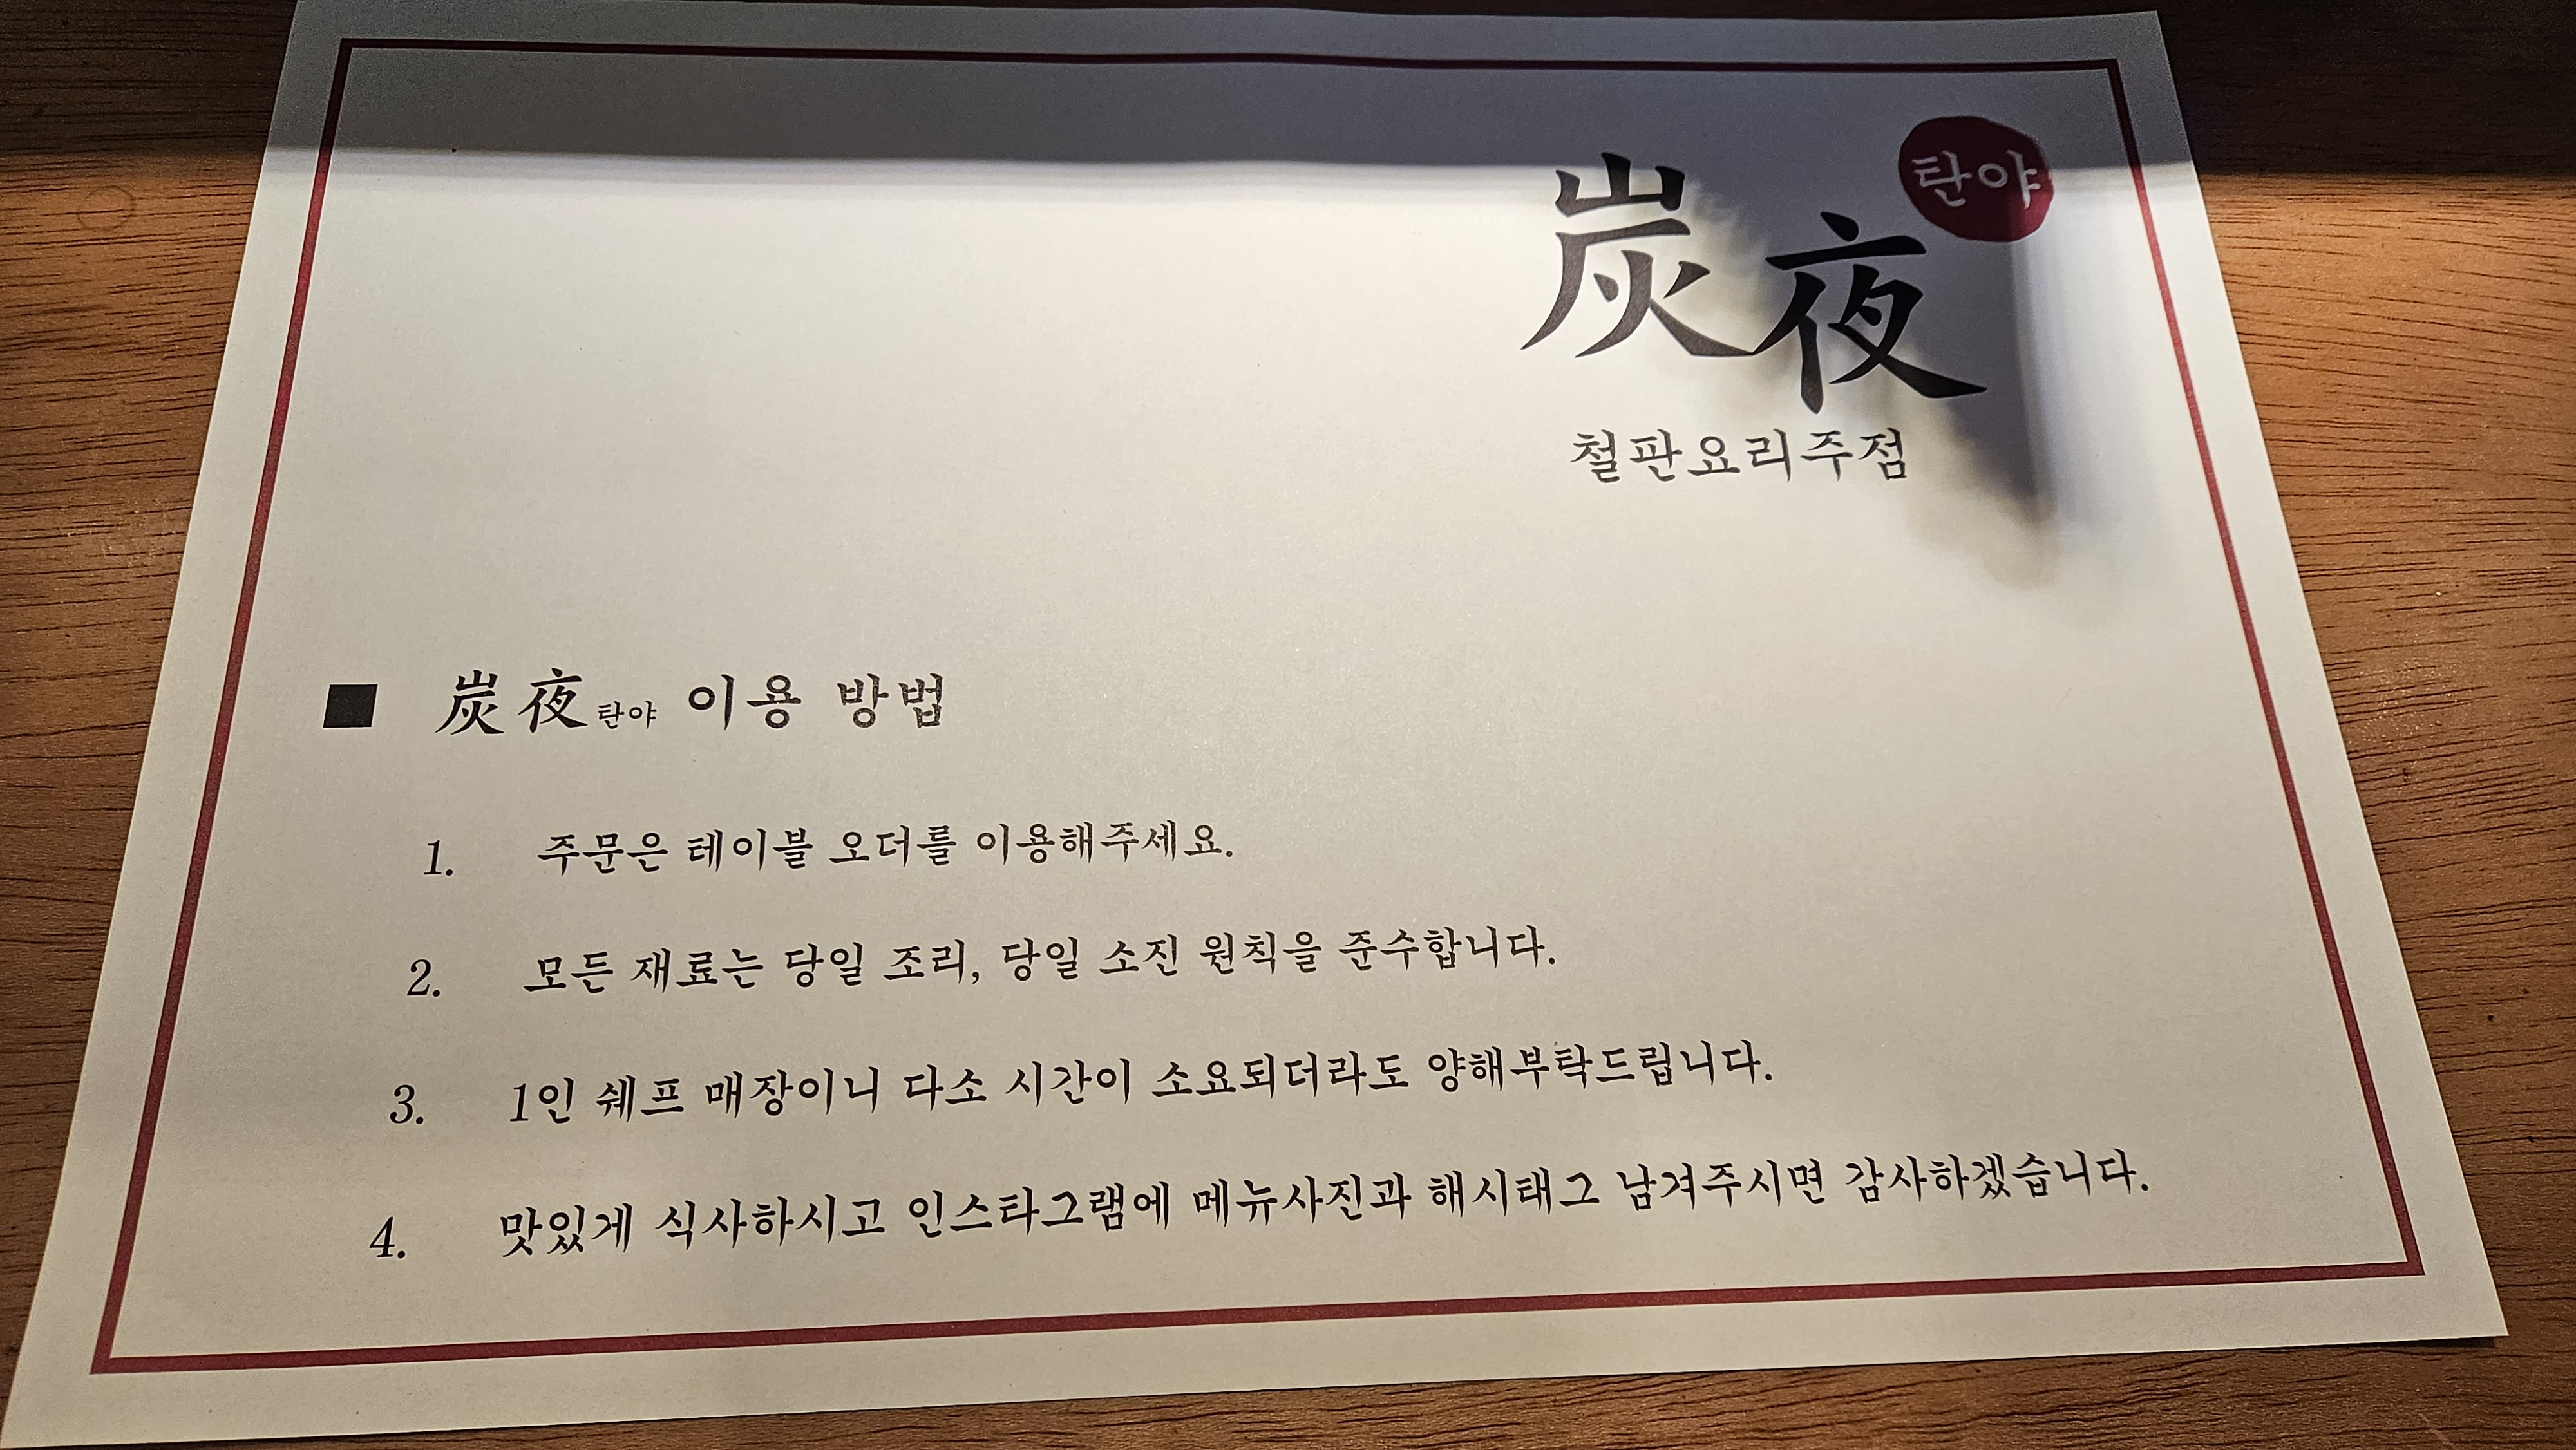 탄야
炭夜
철판요리주점
■ 炭夜탄야 이용 방법
1. 주문은 테이블 오더를 이용해주세요.
2. 모든 재료는 당일 조리, 당일 소진 원칙을 준수합니다.
3. 1인 쉐프 매장이니 다소 시간이 소요되더라도 양해부탁드립니다.
4. 맛있게 식사하시고 인스타그램에 메뉴사진과 해시태그 남겨주시면 감사하겠습니다.